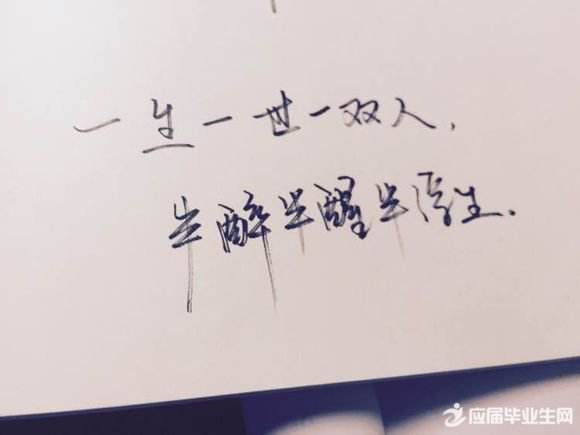 一生一世一双人，
半醉半醒半浮生．
应届毕业生网